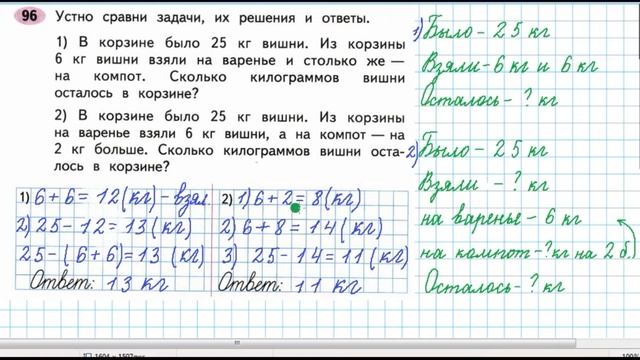 96 Устно сравни задачи, их решения и ответы.
1) В корзине было 25 кг вишни. Из корзины
6 кг вишни взяли на варенье и столько же —
на компот. Сколько килограммов вишни
осталось в корзине?
2) В корзине было 25 кг вишни. Из корзины
на варенье взяли 6 кг вишни, а на компот — на
2 кг больше. Сколько килограммов вишни оста-
лось в корзине?
1) 6 + 6 = 12 (кг) - взял
2) 25 - 12 = 13 (кг)
25 - (6 + 6) = 13 (кг)
Ответ: 13 кг
2) 1) 6 + 2 = 8 (кг)
2) 6 + 8 = 14 (кг)
3) 25 - 14 = 11 (кг)
Ответ: 11 кг
1) Было - 25 кг
Взяли - 6 кг и 6 кг
Осталось - ? кг
2) Было - 25 кг
Взяли - ? кг
на варенье - 6 кг
на компот - ? кг на 2 б.)
Осталось - ? кг